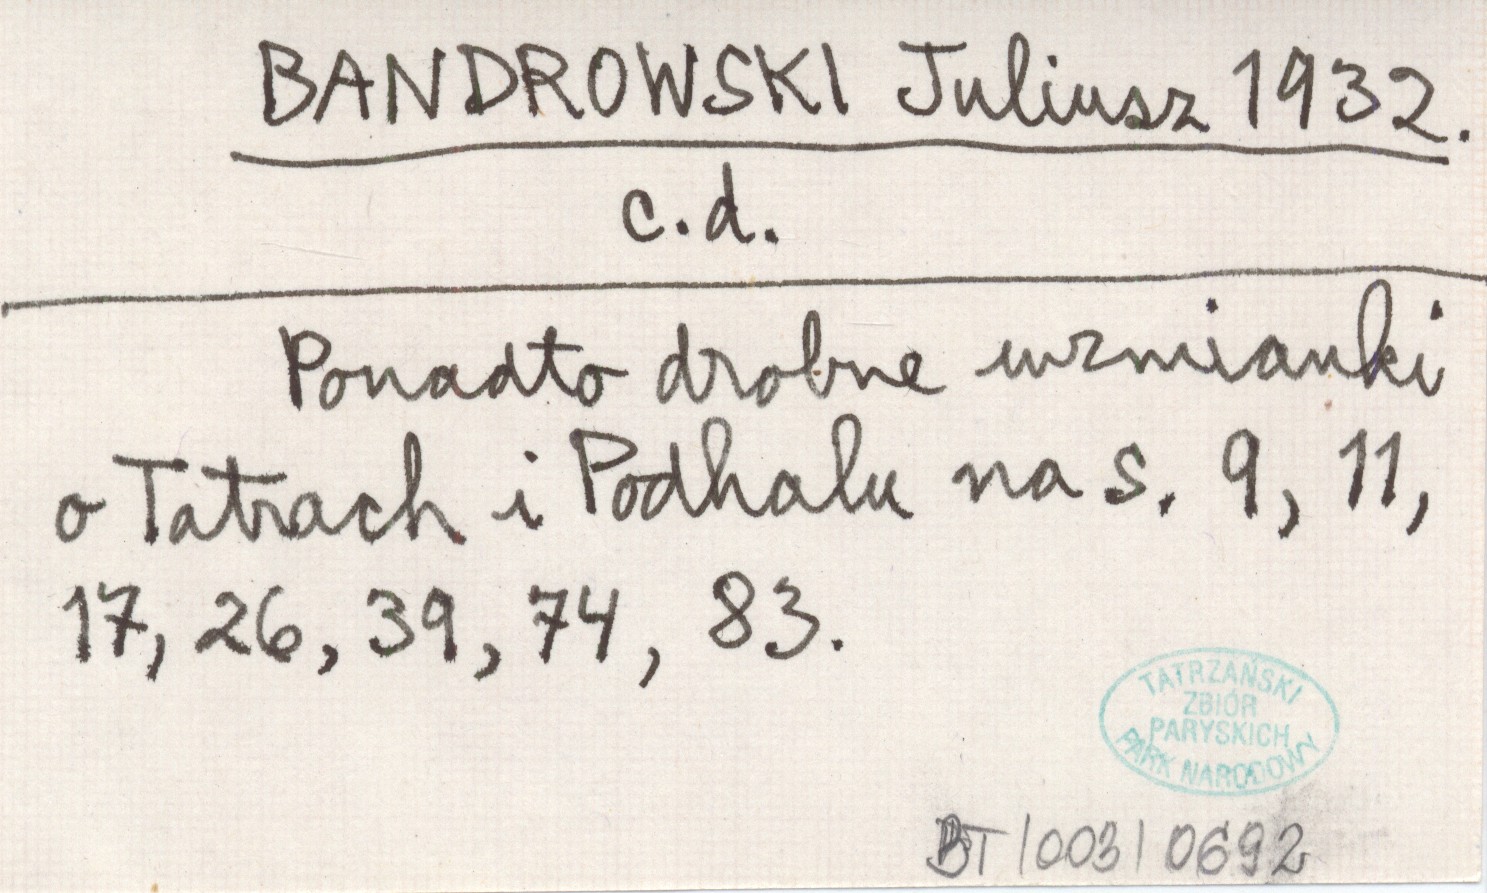 BANDROWSKI Juliusz 1932.
c.d.
Ponadto drobne wzmianki
o Tatrach i Podhalu na s. 9, 11,
17, 26, 39, 74, 83.
TATRZAŃSKI
ZBIÓR
PARYSKICH
PARK NARODOWY
BT/003/0692